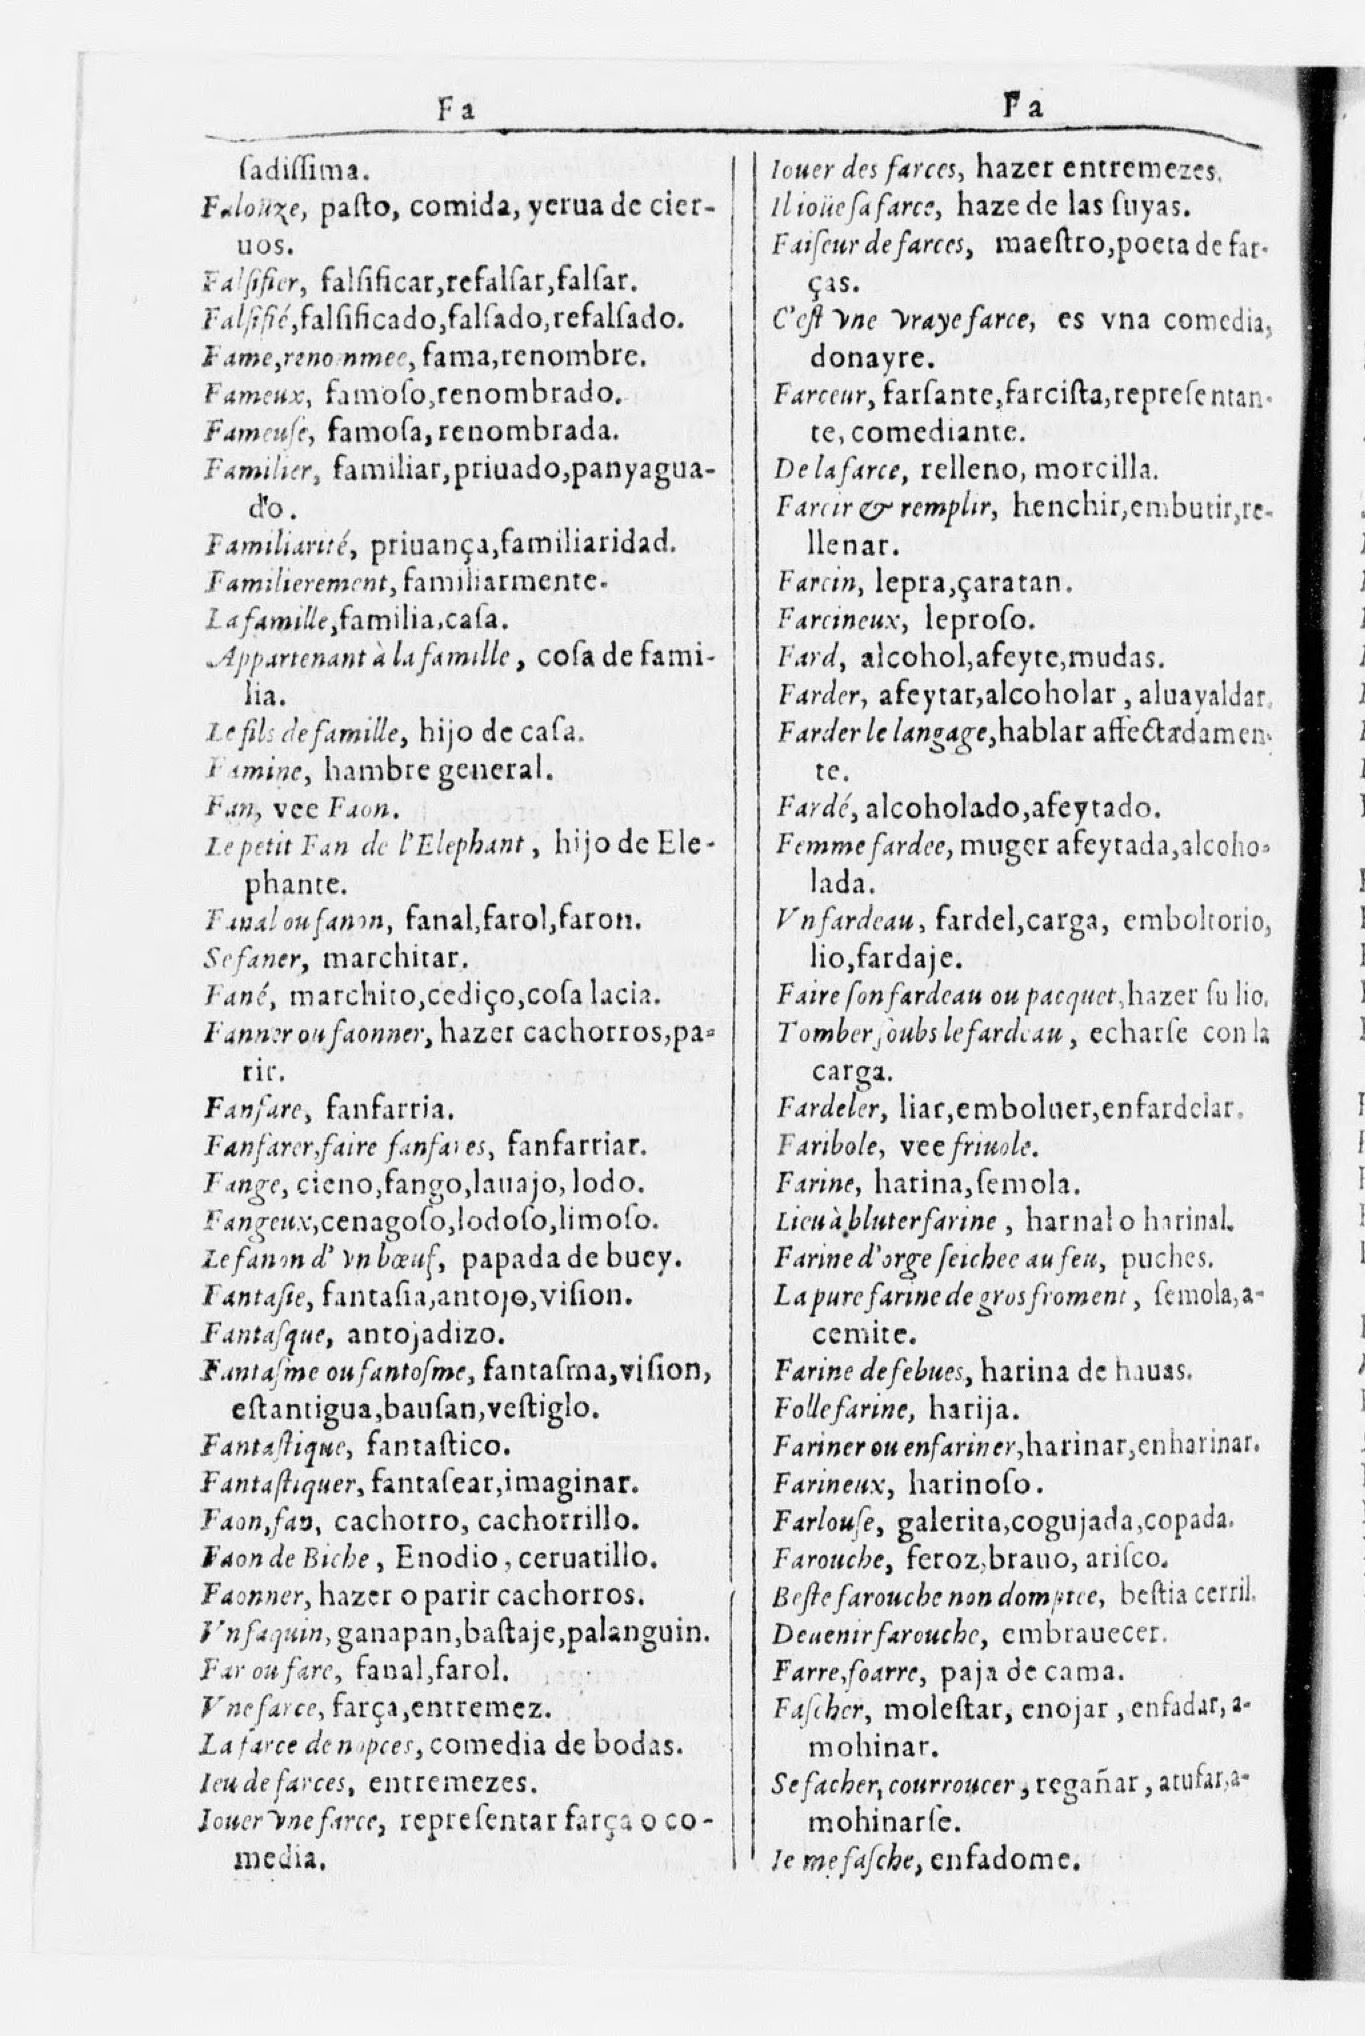 Fa
ſadiſſima.
Falouze, paſto, comida, yerua de cier-
uos.
Falſifier, falſificar, refalſar, falſar.
Falſifié, falſificado, falſado, refalſado.
Fame, renommee, fama, renombre.
Fameux, famoſo, renombrado.
Fameuſe, famoſa, renombrada.
Familier, familiar, priuado, panyagua-
do.
Familiarité, priuança, familiaridad.
Familierement, familiarmente.
La famille, familia, caſa.
Appartenant à la famille, coſa de fami-
lia.
Le fils de famille, hijo de caſa.
Famine, hambre general.
Fan, vee Faon.
Le petit Fan de l'Elephant, hijo de Ele-
phante.
Fanal ou fanon, fanal, farol, faron.
Se faner, marchitar.
Fané, marchito, cediço, coſa lacia.
Fanner ou faonner, hazer cachorros, pa-
rir.
Fanfare, fanfarria.
Fanfarer, faire fanfares, fanfarriar.
Fange, cieno, fango, lauajo, lodo.
Fangeux, cenagoſo, lodoſo, limoſo.
Le fanon d'vn bœuf, papada de buey.
Fantaſie, fantaſia, antojo, viſion.
Fantaſque, antojadizo.
Fantaſme ou fantoſme, fantaſma, viſion,
eſtantigua, bauſan, veſtiglo.
Fantaſtique, fantaſtico.
Fantaſtiquer, fantaſear, imaginar.
Faon, fan, cachorro, cachorrillo.
Faon de Biche, Enodio, ceruatillo.
Faonner, hazer o parir cachorros.
Vn faquin, ganapan, baſtaje, palanguin.
Far ou fare, fanal, farol.
Vne farce, farça, entremez.
La farce de nopces, comedia de bodas.
Ieu de farces, entremezes.
Iouer vne farce, repreſentar farça o co-
media.
Fa
Iouer des farces, hazer entremezes.
Il ioüe ſa farce, haze de las ſuyas.
Faiſeur de farces, maeſtro, poeta de far-
ças.
C'eſt vne vraye farce, es vna comedia,
donayre.
Farceur, farſante, farciſta, repreſentan-
te, comediante.
De la farce, relleno, morcilla.
Farcir & remplir, henchir, embutir, re-
llenar.
Farcin, lepra, çaratan.
Farcineux, leproſo.
Fard, alcohol, afeyte, mudas.
Farder, afeytar, alcoholar, aluayaldar.
Farder le langage, hablar affectadamen-
te.
Fardé, alcoholado, afeytado.
Femme fardee, muger afeytada, alcoho-
lada.
Vn fardeau, fardel, carga, emboltorio,
lio, fardaje.
Faire ſon fardeau ou pacquet, hazer ſu lio.
Tomber ſoubs le fardeau, echarſe con la
carga.
Fardeler, liar, emboluer, enfardelar.
Faribole, vee friuole.
Farine, harina, ſemola.
Lieu à bluter farine, harnal o harinal.
Farine d'orge ſeichee au feu, puches.
La pure farine de gros froment, ſemola, a-
cemite.
Farine de febues, harina de hauas.
Folle farine, harija.
Fariner ou enfariner, harinar, enharinar.
Farineux, harinoſo.
Farlouſe, galerita, cogujada, copada.
Farouche, feroz, brauo, ariſco.
Beſte farouche non domptee, beſtia cerril.
Deuenir farouche, embrauecer.
Farre, foarre, paja de cama.
Faſcher, moleſtar, enojar, enfadar, a-
mohinar.
Se facher, courroucer, regañar, atufar, a-
mohinarſe.
Ie me faſche, enfadome.